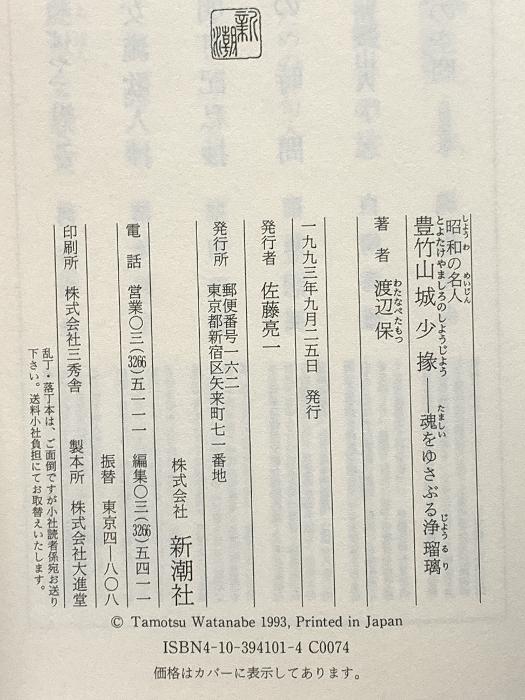 新潮
昭和の名人
しょうわ めいじん
豊竹山城少掾——魂をゆさぶる浄瑠璃
とよたけやましろのしょうじょう たましい じょうるり
著者 渡辺保
わたなべたもつ
一九九三年九月二五日 発行
発行者 佐藤亮一
発行所 郵便番号一六二
東京都新宿区矢来町七一番地
株式会社 新潮社
電話 営業〇三(3266)五一一一 編集〇三(3266)五四一一
振替 東京四—八〇八
印刷所 株式会社三秀舎 製本所 株式会社大進堂
乱丁・落丁本は、ご面倒ですが小社読者係宛お送り
下さい。送料小社負担にてお取替えいたします。
© Tamotsu Watanabe 1993, Printed in Japan
ISBN4-10-394101-4 C0074
価格はカバーに表示してあります。